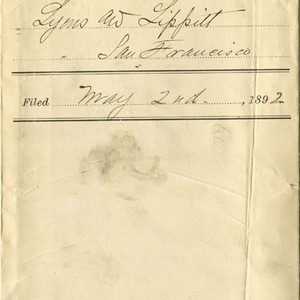 Lyons and Lippitt
San Francisco
Filed May 2nd., 1892